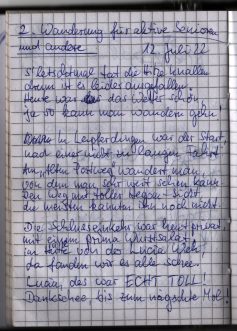 2. Wanderung für aktive Senioren
und andere
12. Juli 22
S'letschtmal hat die Hitze
drum ist es leider ausgefallen.
Heute war das Wetter schön,
ja so kann man wandern gehn!
In Leipferdingen war der Start,
nach einer nicht zu langen Fahrt
Am alten Postweg wandert man,
von dem man sehr weit sehen kann
Den Weg mit toller Gegend
die meisten kannten ihn noch nicht.
Die Schlusseinkehr war heut privat,
mit einem prima Wurstsalat,
im von der Lucia
da fanden wir es alle schee.
Lucia, des war ECHT TOLL!
Dankschee bis zum nägschte Mol!